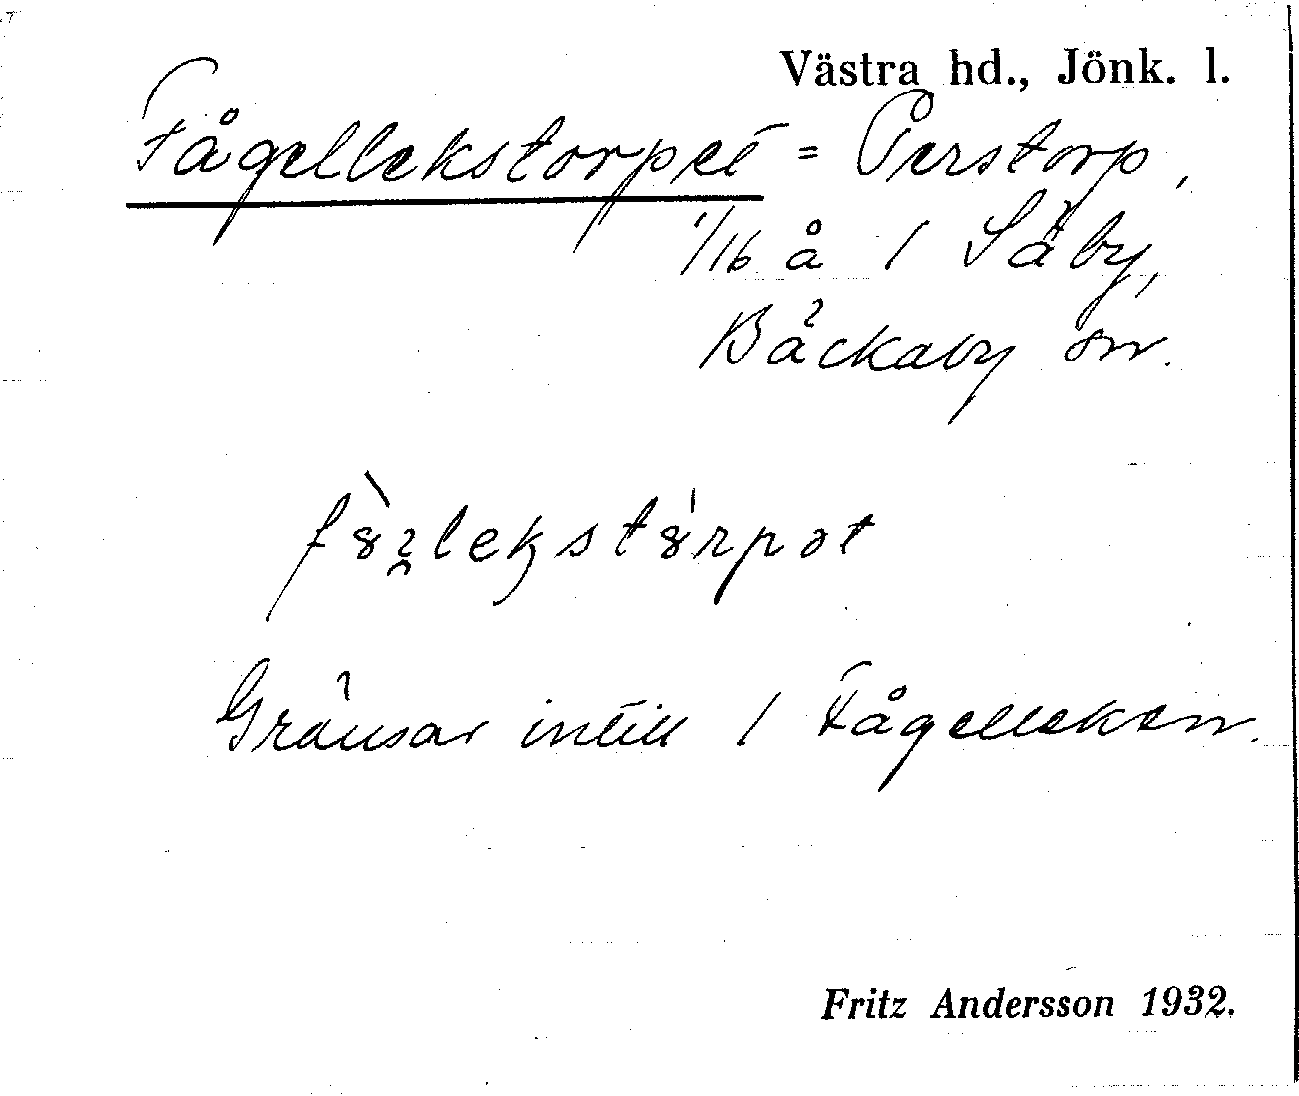 Västra hd., Jönk. l.
Fågellekstorpet = Perstorp,
1/16 å 1 Säby,
Bäckaby sn.
Gränsar intill 1 Fågelleken.
Fritz Andersson 1932.